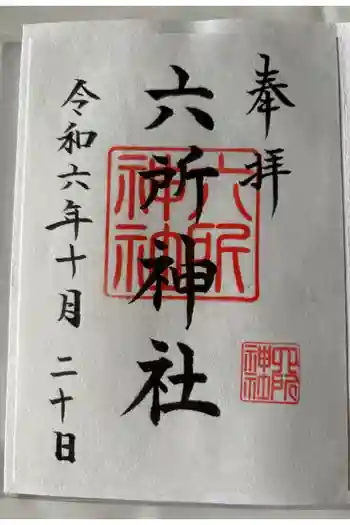 奉拝
六所神社
六所
神社
六所
神社
令和六年十月二十日